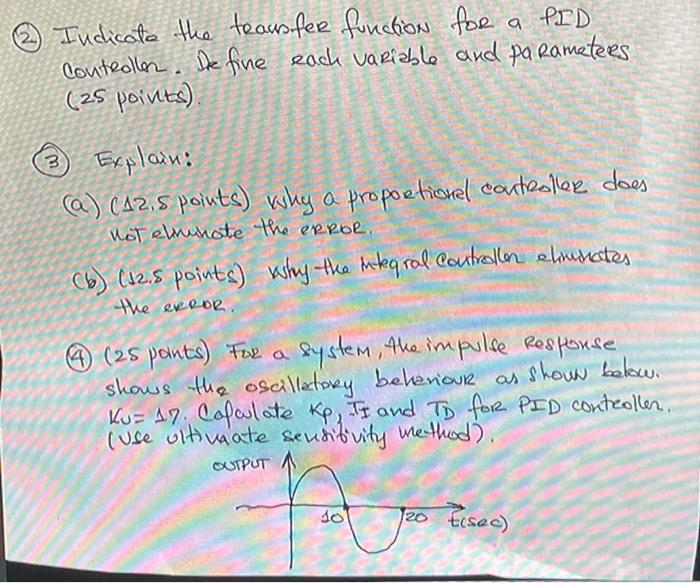 ② Indicate the transfer function for a PID
Controller. Define each variable and parameters
(25 points).
③ Explain:
(a) (12,5 points) Why a proportional controller does
not eliminate the error.
(b) (12.5 points) Why the integral Controller eliminates
the error.
④ (25 points) For a system, the impulse Response
shows the oscillatory behaviour as shown below.
Ku= 17. Calculate Kp, TI and TD for PID controller.
(Use ultimate sensitivity method).
OUTPUT
10 20 t(sec)